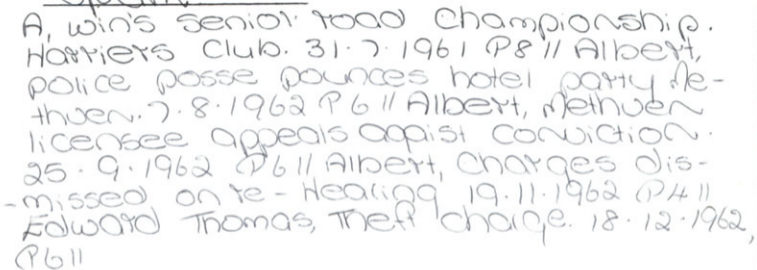 A, win's senior road Championship.
Harriers Club. 31.7.1961 P8 // Albert,
police posse pounces hotel party Me-
thven. 7.8.1962 P6 // Albert, Methven
licensee appeals agaist conviction.
25.9.1962 P6 // Albert, Charges dis-
-missed on re-Hearing 19.11.1962 P4 //
Edward Thomas, Theft charge. 18.12.1962,
P6 //